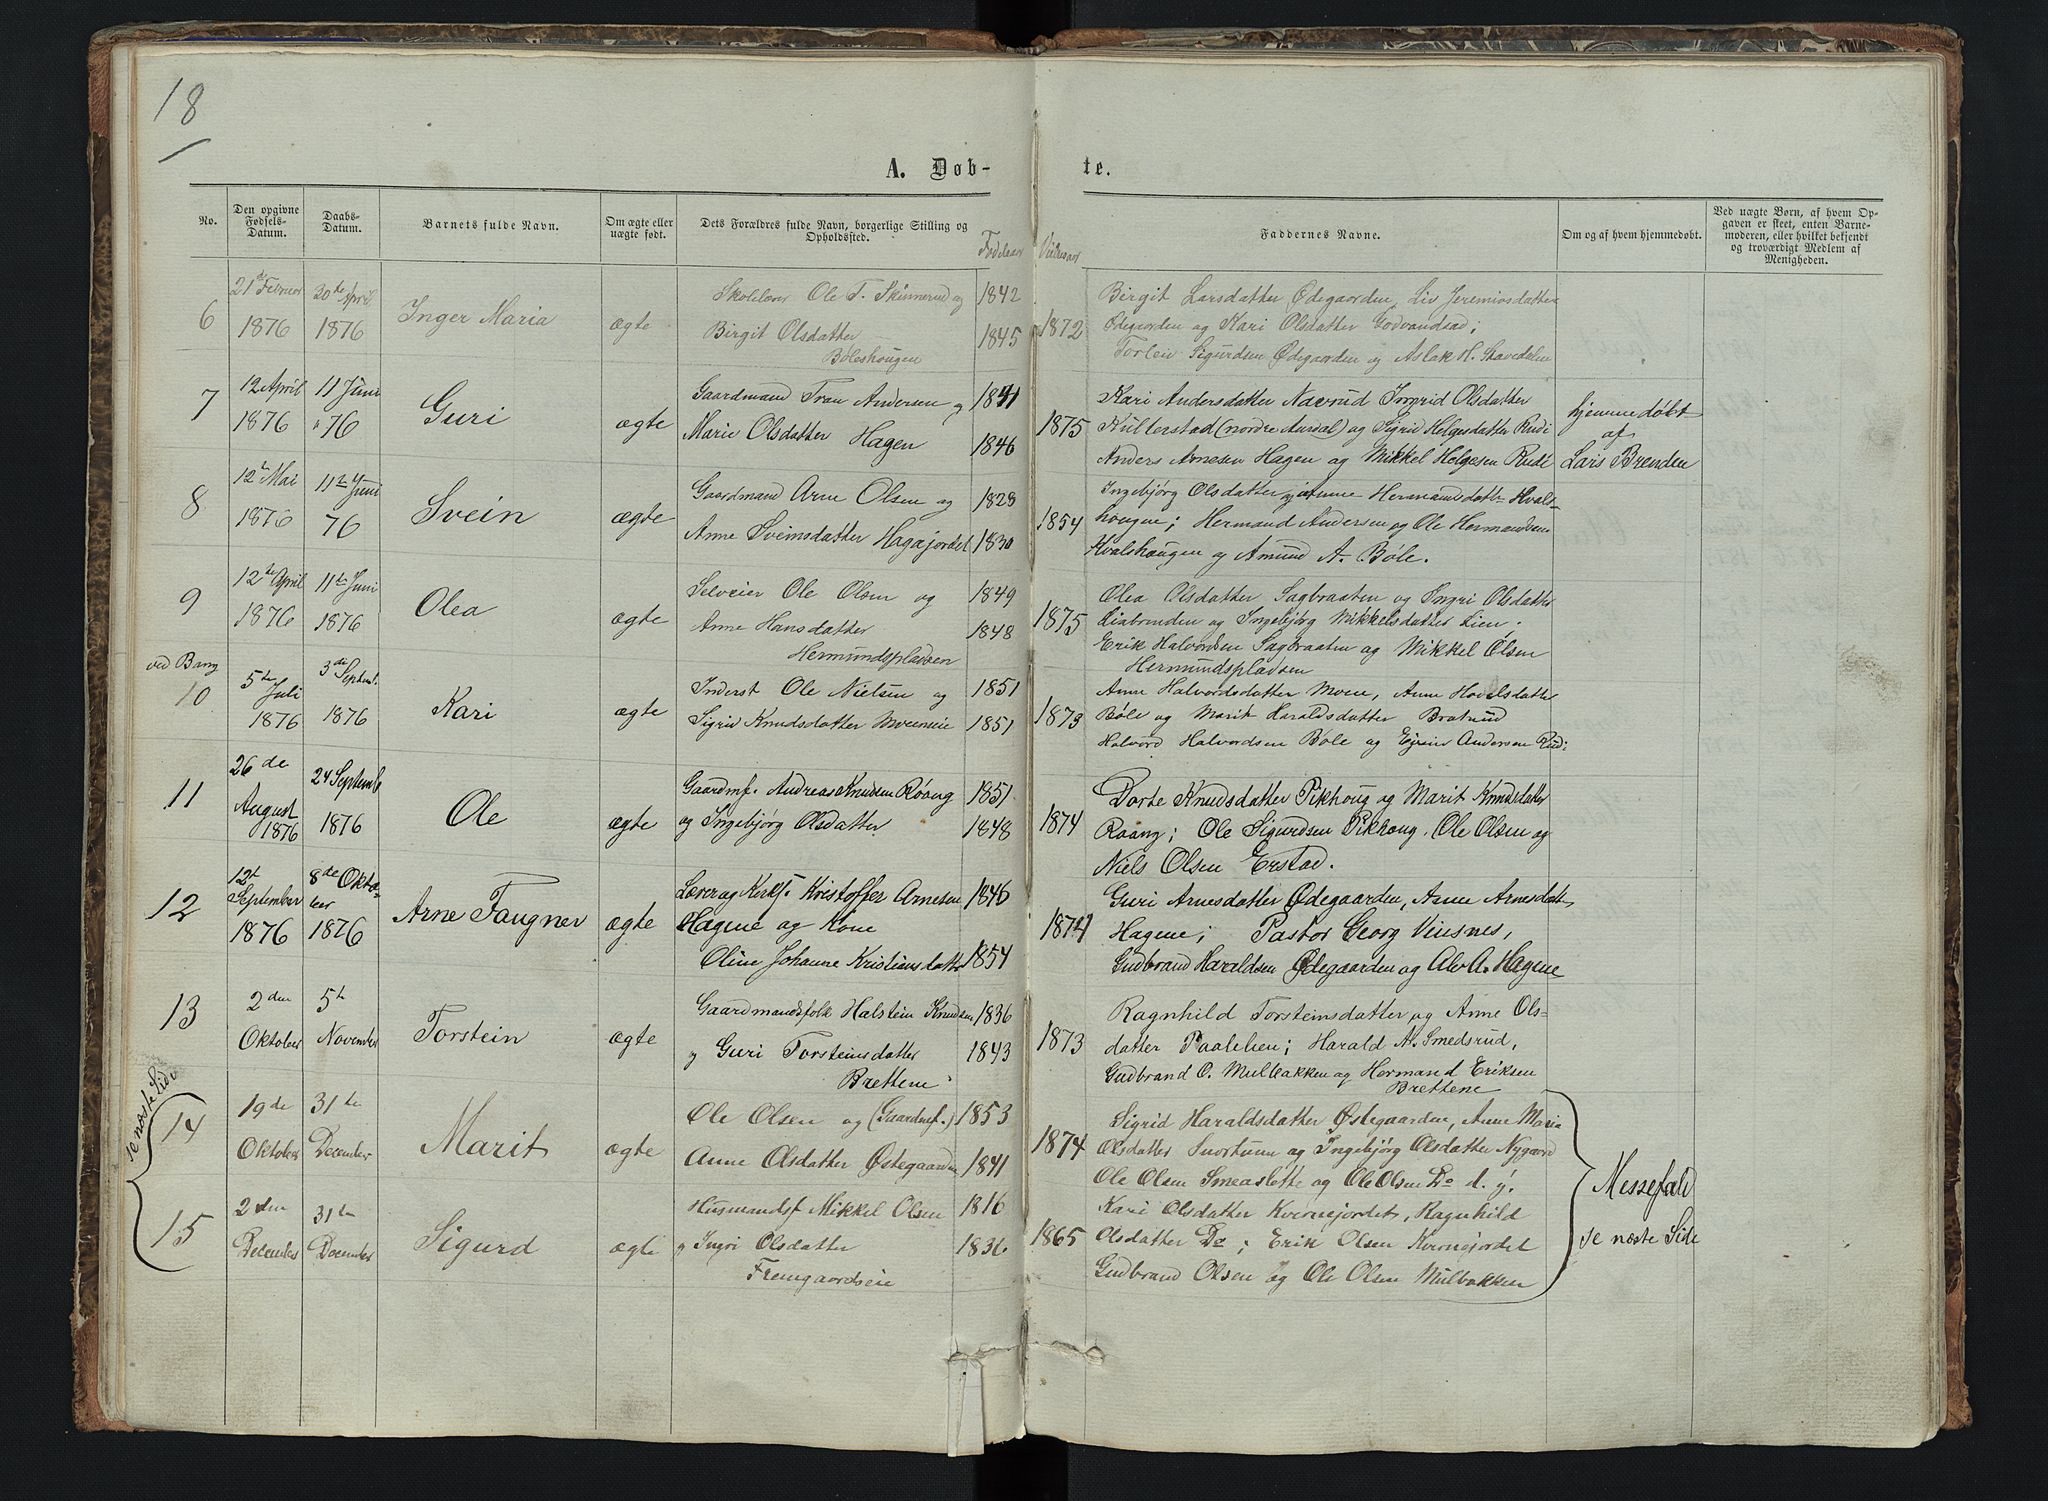 18
A. Døb-
te.
No.
Den opgivne Fødsels-Datum.
Daabs-Datum.
Barnets fulde Navn.
Om ægte eller uægte født.
Dets Forældres fulde Navn, borgerlige Stilling og Opholdssted.
Fødselsaar
Vielsesaar
Faddernes Navne.
Om og af hvem hjemmedøbt.
Ved uægte Børn, af hvem Opgaven er skeet, enten Barnemoderen, eller hvilket bekjendt og troværdigt Medlem af Menigheden.
6
21de Februar
1876
30te April
1876
Inger Maria
ægte
Skolelærer Ole T. Skinnerud og 1842
Birgit Olsdatter 1845
Bøleshougen
1872
Birgit Larsdatter Ødegaarden, Liv Jeremiasdatter
Ødegaarden og Kari Olsdatter
Torleiv Sigurdsen Ødegaarden og Aslak H.
7
12 April
1876
11 Juni
76
Guri
ægte
Gaardmand Andersen og 1841
Marie Olsdatter Hagen 1846
1875
Kari Andersdatter Navrud Ingrid Olsdatter
Kullerstad (nordre Aurdal) og Sigrid Helgesdatter Rudi
Anders Arnesen Hagen og Mikkel Helgesen Rudi
hjemmedøbt
af
Lars Brenden
8
12te Mai
1876
11te Juni
76
Svein
ægte
Gaardmand Arne Olsen og 1828
Anne Sveinsdatter Hagajordet 1830
1854
Ingebjørg Olsdatter og Anne Hermandsdatter Hvals-
hougene; Hermand Andersen og Ole Hermandsen
Hvalshougen og Amund A. Bøle.
9
12te April
1876
11te Juni
1876
Olea
ægte
Selveier Ole Olsen og 1849
Anne Hansdatter 1848
Hermundspladsen
1875
Olea Olsdatter Sagbraaten og Ingri Olsdatter
Liabrenden og Ingebjørg Mikkelsdatter Lien.
Erik Halvordsen Sagbraaten og Mikkel Olsen
Hermundspladsen
ved Bang
10
5te Juli
1876
3de Septemb.
1876
Kari
ægte
Inderst Ole Nielsen og 1851
Sigrid Knudsdatter Moeneie 1851
1873
Anne Halvordsdatter Moen, Anne Hovelsdatter
Bøle og Marit Haraldsdatter Bratrud
Halvord Halvordsen Bøle og Andersen Rudi
11
26de
August
1876
24 Septembe
1876
Ole
ægte
Gaardmf. Andreas Knudsen Røang 1851
og Ingebjørg Olsdatter 1848
1874
Dorte Knudsdatter Pikhoug og Marit Knudsdatter
Røang; Ole Sigurdsen Pikhoug, Ole Olsen og
Niels Olsen Erstad.
12
12te
September
1876
8de Okto-
ber
1876
Arne Faugner
ægte
Lærer og Kirkes. Kristoffer Arnesen 1846
Hagene og Kone
Oline Johanne Kristiansdatter 1854
1874
Guri Arnesdatter Ødegaarden, Anne Arnesdatt.
Hagene; Pastor Georg Vinsnes,
Gudbrand Haraldsen Ødegaarden og Ale A. Hagene
13
2den
Oktober
5te
November
Torstein
ægte
Gaardmandsfolk Halstein Knudsen 1836
og Guri Torsteinsdatter 1843
Brettene
1873
Ragnhild Torsteinsdatter og Anne Ols-
datter Paalelien; Harald A. Smedsrud,
Gudbrand O. Mulbakken og Hermand Eriksen
Brettene
se næste Side
14
19de
Oktober
31te
December
Marit
ægte
Ole Olsen og (Gaardmf.) 1853
Anne Olsdatter Østegaarden 1841
1874
Sigrid Haraldsdatter Østegaarden, Anne Maria
Olsdatter Snortum og Ingebjørg Olsdatter Nygaard
Ole Olsen Smeaslette og Ole Olsen Do d. y.
15
2den
December
31te
December
Sigurd
ægte
Husmandsf Mikkel Olsen 1816
og Ingri Olsdatter 1836
Fremgaardseie
1865
Kari Olsdatter Kvernejordet, Ragnhild
Olsdatter Do; Erik Olsen Kvernejordet
Gudbrand Olsen og Ole Olsen Mulbakken
Messefald
se næste Side